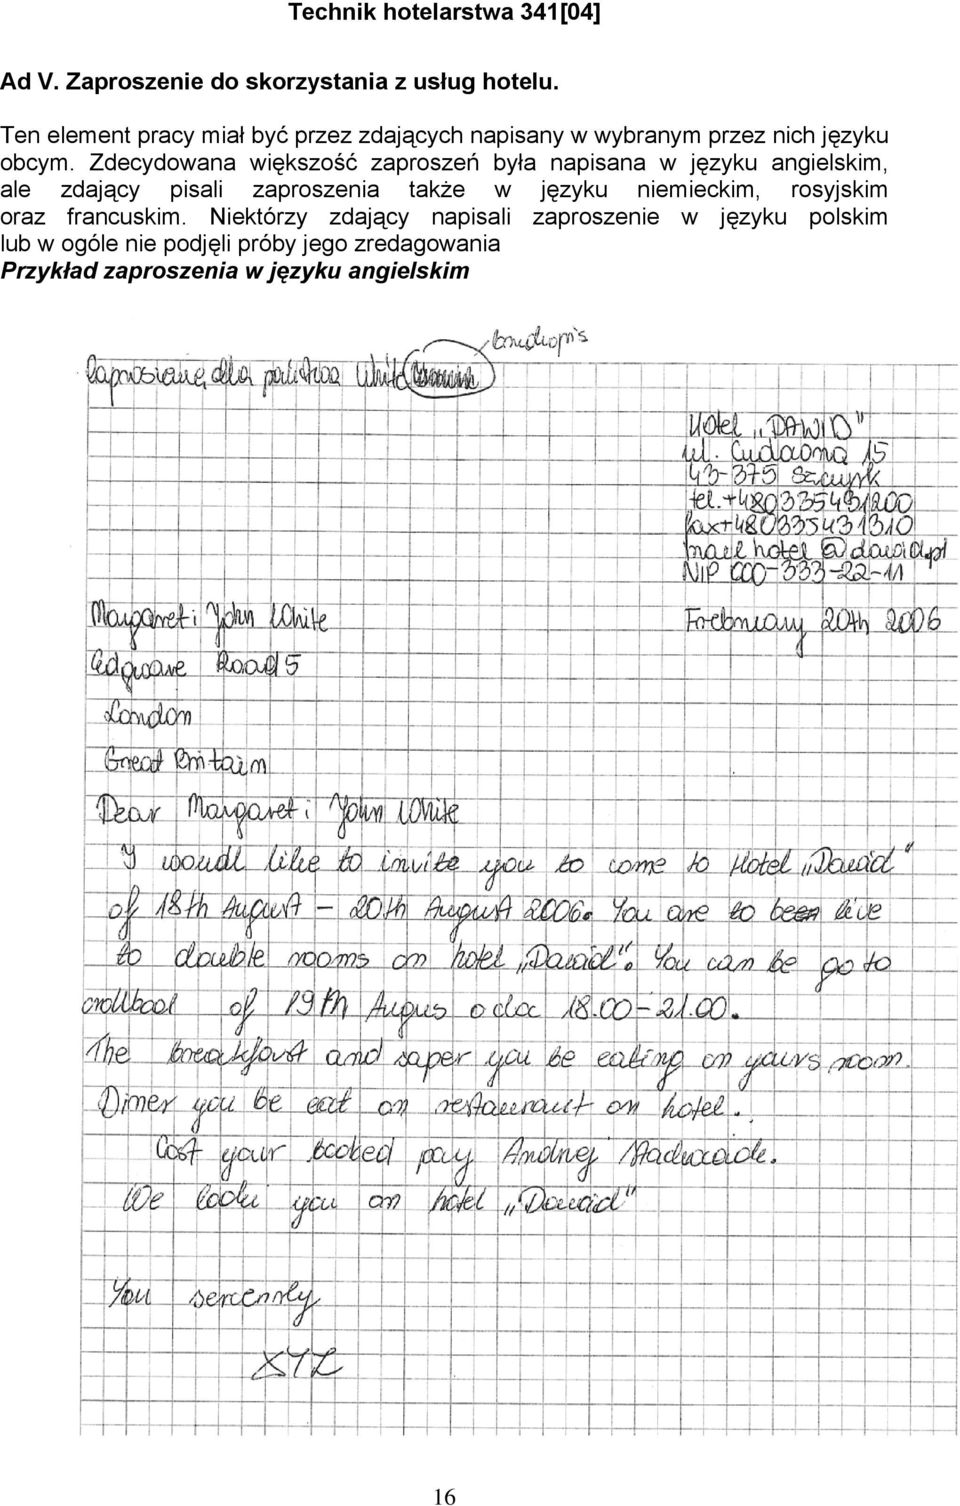 Technik hotelarstwa 341[04]
Ad V. Zaproszenie do skorzystania z usług hotelu.
Ten element pracy miał być przez zdających napisany w wybranym przez nich języku
obcym. Zdecydowana większość zaproszeń była napisana w języku angielskim,
ale zdający pisali zaproszenia także w języku niemieckim, rosyjskim
oraz francuskim. Niektórzy zdający napisali zaproszenie w języku polskim
lub w ogóle nie podjęli próby jego zredagowania
Przykład zaproszenia w języku angielskim
brudnopis
Zaproszenie dla państwa White
Hotel „DAWID"
ul. Cudaczna 15
43-375 Szczyrk
tel. +480335431200
fax +480335431310
mail hotel@dawid.pl
NIP 000-333-22-11
Margaret i John White
Frebruary 20th 2006
Edgware Road 5
London
Great Britain
Dear Margaret i John White
I woudl like to invite you to come to Hotel „Dawid"
of 18th August - 20th August 2006. You are to live
to double rooms on hotel „Dawid". You can be go to
of 19th Augus o cloc 18.00-21.00.
The breakfast and saper you be eating on yours room.
Dimer you be eat on restaurant on hotel.
Cost your booked pay Andrzej
We you on hotel „Dawid"
You sercennly
XYZ
16